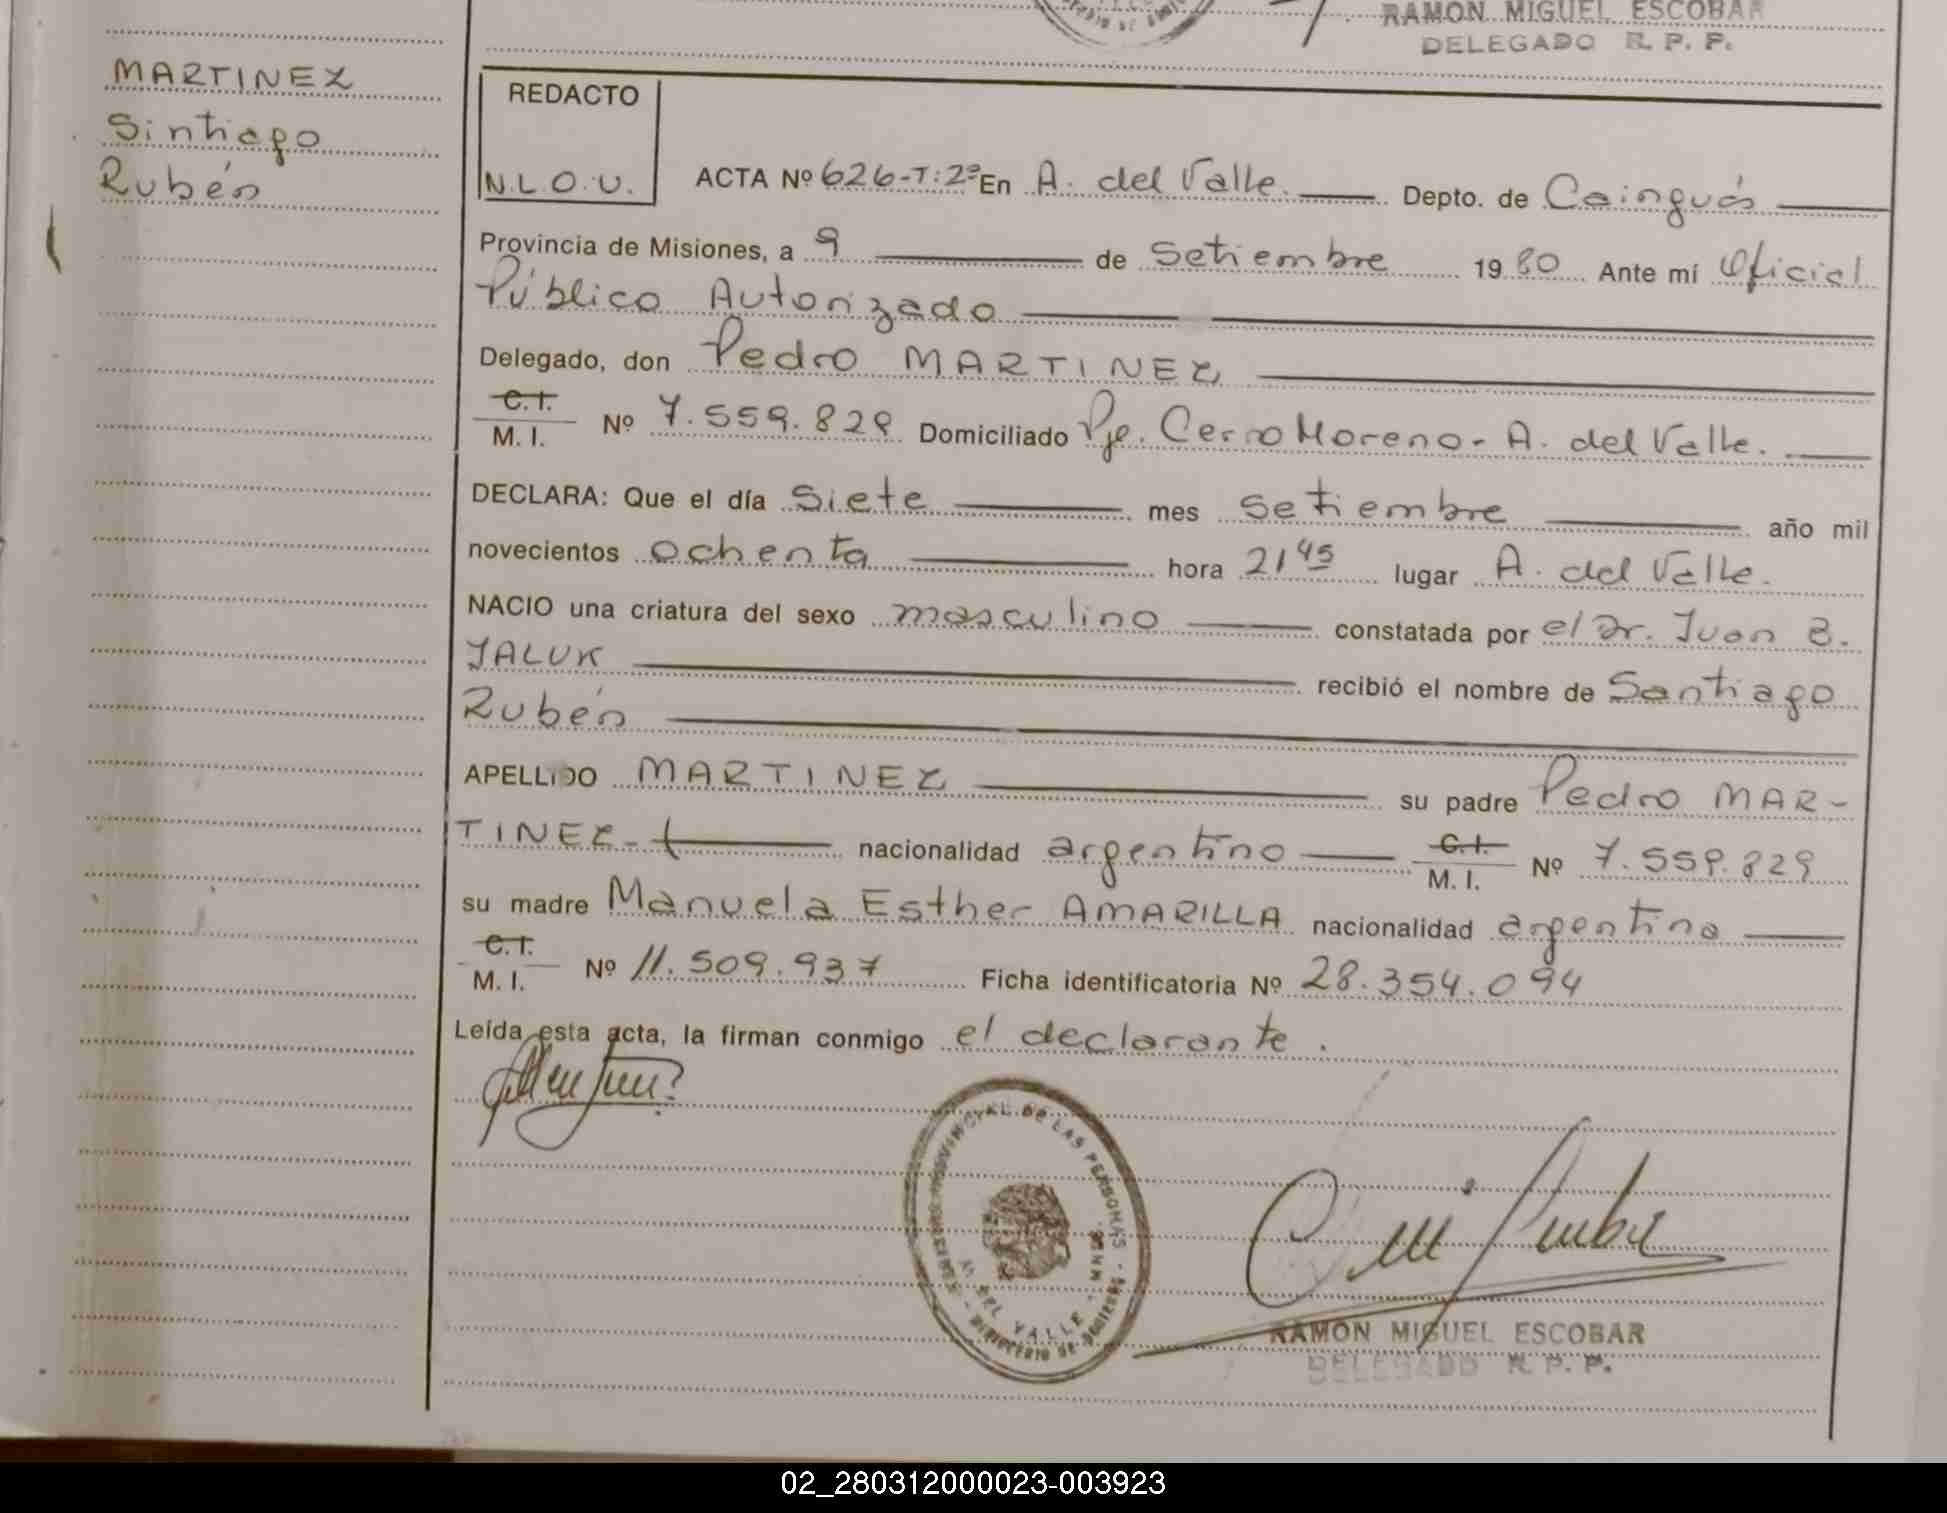 RAMON MIGUEL ESCOBAR
DELEGADO R. P. P.
MARTINEZ
Sintiago
Rubén
REDACTO
N.L.O.U.
ACTA Nº 626-T:2º En A. del Valle. Depto. de Cainguás
Provincia de Misiones, a 9 de Setiembre 1980 Ante mí Oficial
Público Autorizado
Delegado, don Pedro MARTINEZ
C.I.
M. I. Nº 7.559.829 Domiciliado Pje. Cerro Moreno - A. del Valle.
DECLARA: Que el día Siete mes Setiembre año mil
novecientos ochenta hora 21 45 lugar A. del Valle.
NACIO una criatura del sexo masculino constatada por el Dr. Juan B.
JALUK recibió el nombre de Santiago
Rubén
APELLIDO MARTINEZ su padre Pedro MAR-
TINEZ - nacionalidad argentino C.I. M. I. Nº 7.559.829
su madre Manuela Esther AMARILLA nacionalidad argentina
C.I.
M. I. Nº 11.509.937 Ficha identificatoria Nº 28.354.094
Leída esta acta, la firman conmigo el declarante.
PROVINCIAL DE LAS PERSONAS
DEL VALLE - MNES.
MINISTERIO DE GOBIERNO
RAMON MIGUEL ESCOBAR
DELEGADO R. P. P.
02_280312000023-003923